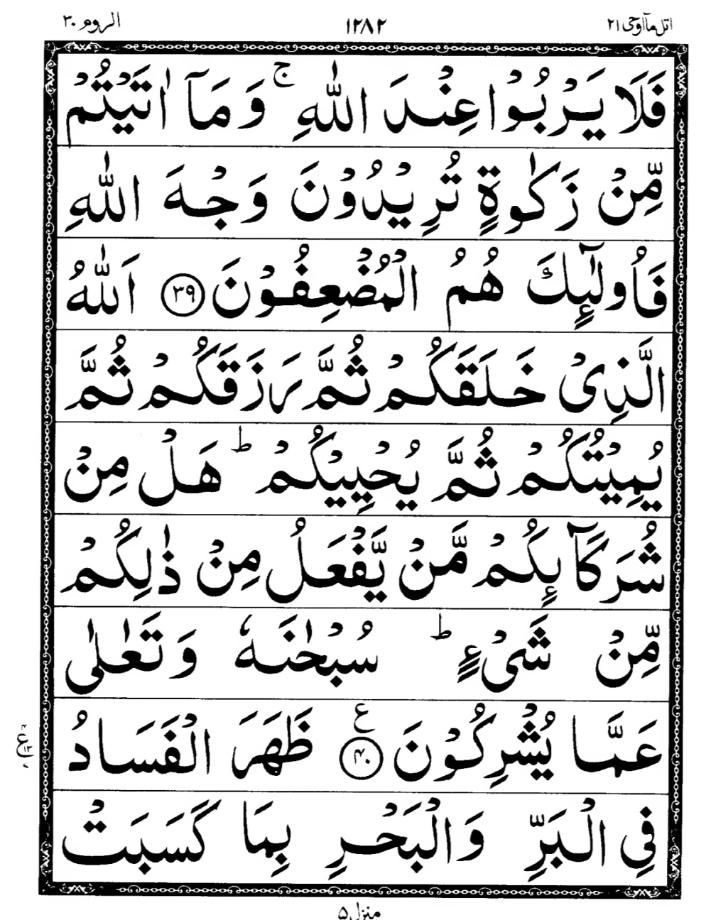 اتل مآ اوحی ۲۱ ۱۲۸۲ الروم ۳۰
فَلَا يَرْبُوْا عِنْدَ اللّٰهِ ۚ وَمَآ اٰتَيْتُمْ
مِّنْ زَكٰوةٍ تُرِيْدُوْنَ وَجْهَ اللّٰهِ
فَاُولٰٓئِكَ هُمُ الْمُضْعِفُوْنَ ﴿۳۹﴾ اَللّٰهُ
الَّذِيْ خَلَقَكُمْ ثُمَّ رَزَقَكُمْ ثُمَّ
يُمِيْتُكُمْ ثُمَّ يُحْيِيْكُمْ ؕ هَلْ مِنْ
شُرَكَآئِكُمْ مَّنْ يَّفْعَلُ مِنْ ذٰلِكُمْ
مِّنْ شَيْءٍ ؕ سُبْحٰنَهٗ وَتَعٰلٰى
عَمَّا يُشْرِكُوْنَ ﴿۴۰﴾ ع ظَهَرَ الْفَسَادُ
فِي الْبَرِّ وَالْبَحْرِ بِمَا كَسَبَتْ
منزل ۵